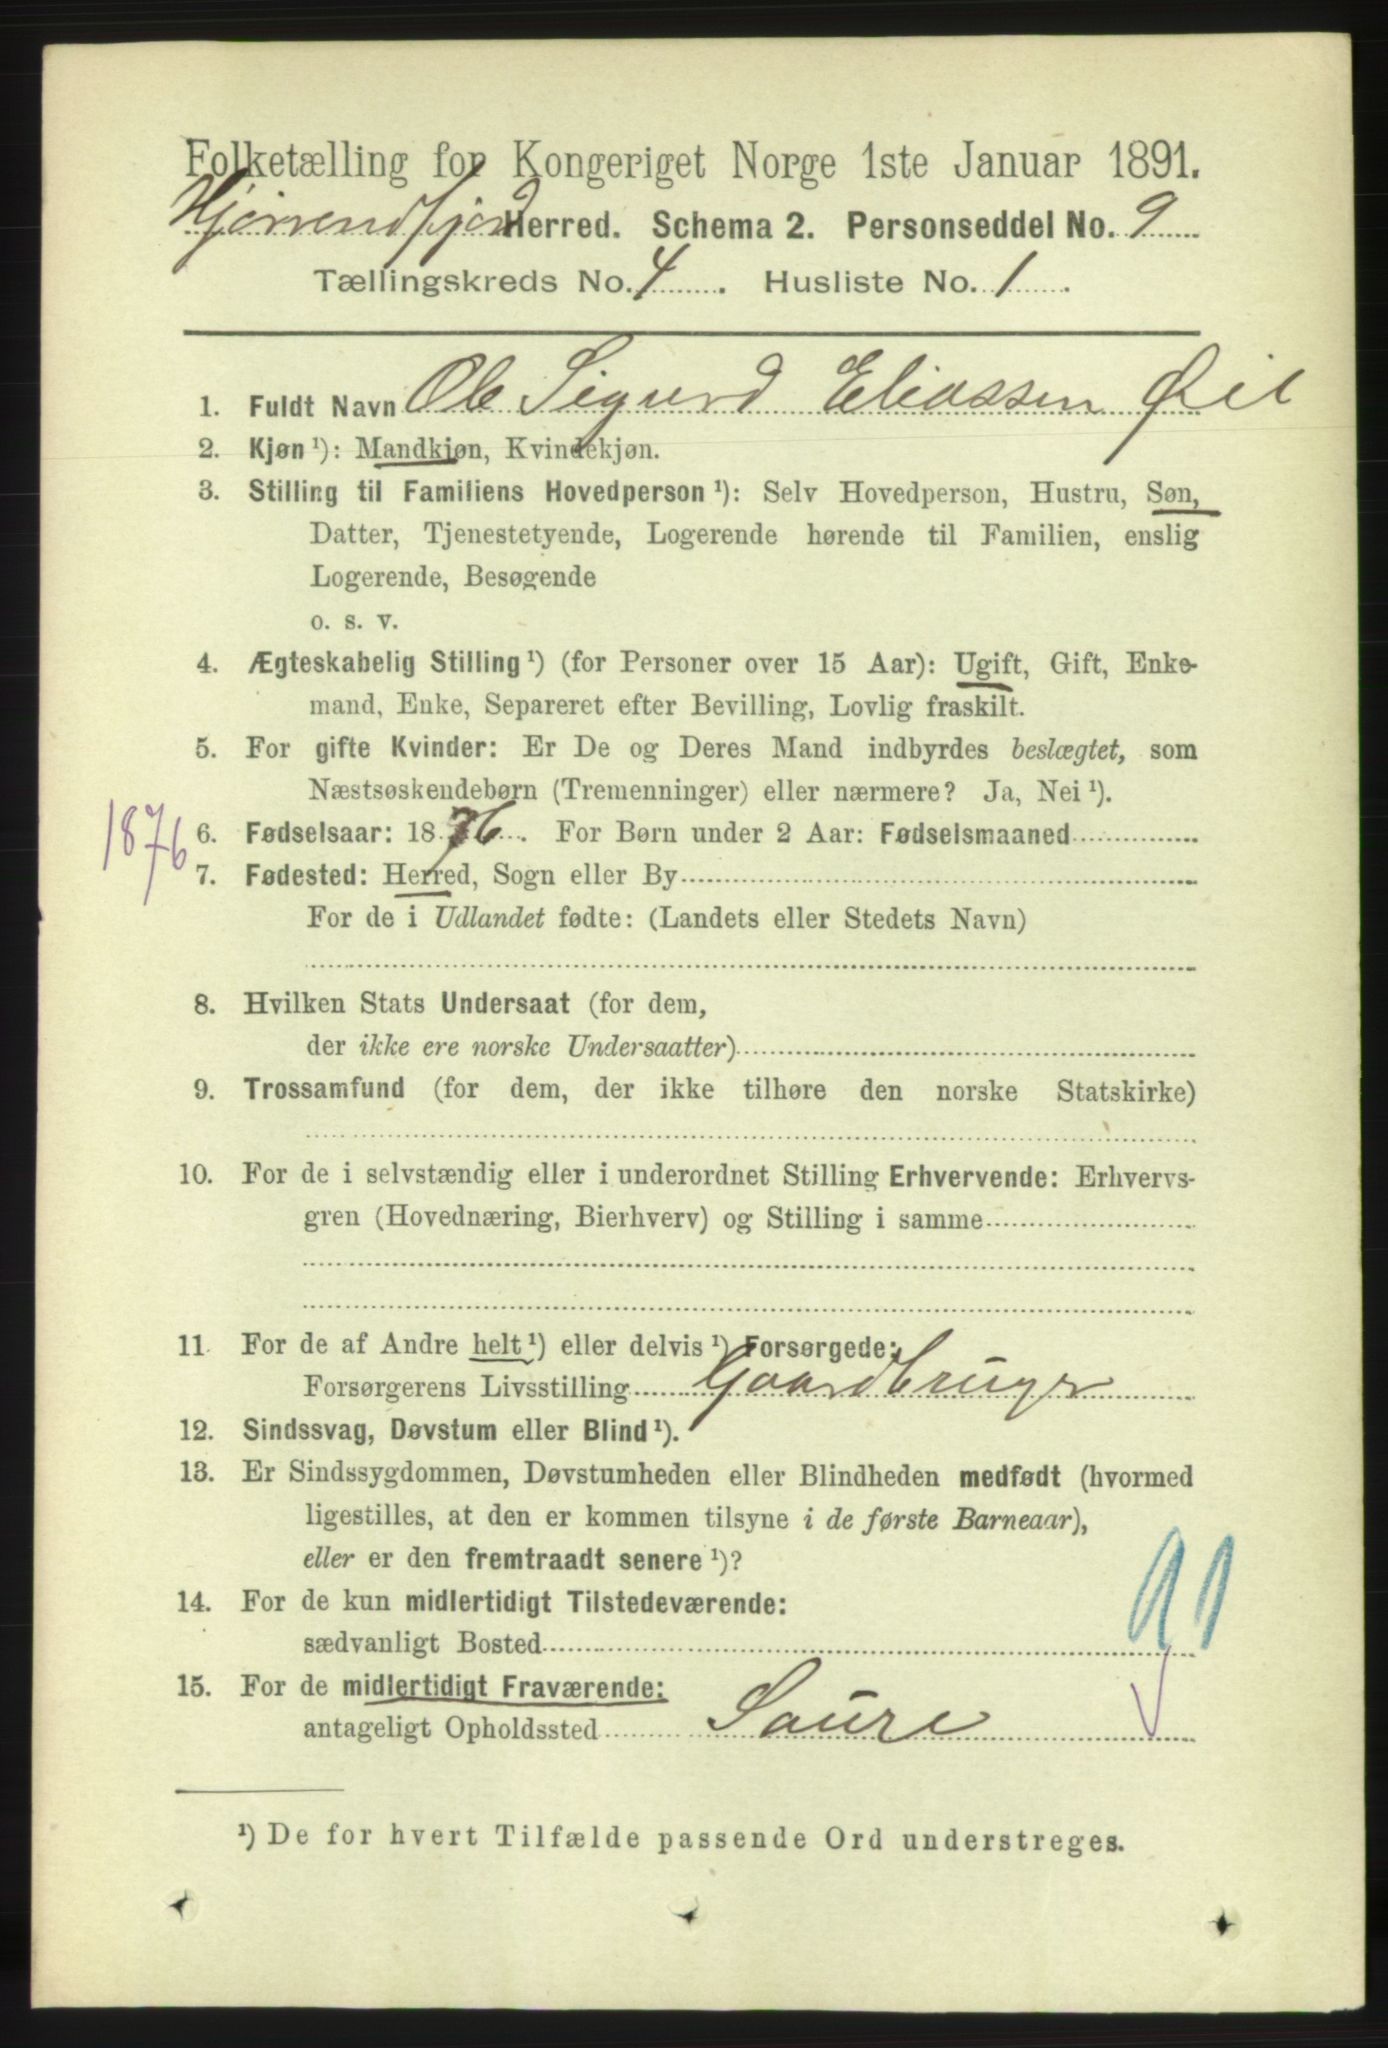 Folketælling for Kongeriget Norge 1ste Januar 1891.
Hjørrendfjord Herred. Schema 2. Personseddel No. 9
Tællingskreds No. 4. Husliste No. 1.
1. Fuldt Navn Ole Sigurd Eliassen
2. Kjøn ¹): Mandkjøn, Kvindekjøn.
3. Stilling til Familiens Hovedperson ¹): Selv Hovedperson, Hustru, Søn,
Datter, Tjenestetyende, Logerende hørende til Familien, enslig
Logerende, Besøgende
o. s. v.
4. Ægteskabelig Stilling ¹) (for Personer over 15 Aar): Ugift, Gift, Enke-
mand, Enke, Separeret efter Bevilling, Lovlig fraskilt.
5. For gifte Kvinder: Er De og Deres Mand indbyrdes beslægtet, som
Næstsøskendebørn (Tremenninger) eller nærmere? Ja, Nei ¹).
1876
6. Fødselsaar: 1876. For Børn under 2 Aar: Fødselsmaaned
7. Fødested: Herred, Sogn eller By
For de i Udlandet fødte: (Landets eller Stedets Navn)
8. Hvilken Stats Undersaat (for dem,
der ikke ere norske Undersaatter)
9. Trossamfund (for dem, der ikke tilhøre den norske Statskirke)
10. For de i selvstændig eller i underordnet Stilling Erhvervende: Erhvervs-
gren (Hovednæring, Bierhverv) og Stilling i samme
11. For de af Andre helt ¹) eller delvis ¹) Forsørgede:
Forsørgerens Livsstilling Gaardbruger
12. Sindssvag, Døvstum eller Blind ¹).
13. Er Sindssygdommen, Døvstumheden eller Blindheden medfødt (hvormed
ligestilles, at den er kommen tilsyne i de første Barneaar),
eller er den fremtraadt senere ¹)?
14. For de kun midlertidigt Tilstedeværende:
sædvanligt Bosted
91
15. For de midlertidigt Fraværende:
antageligt Opholdssted Saure
¹) De for hvert Tilfælde passende Ord understreges.